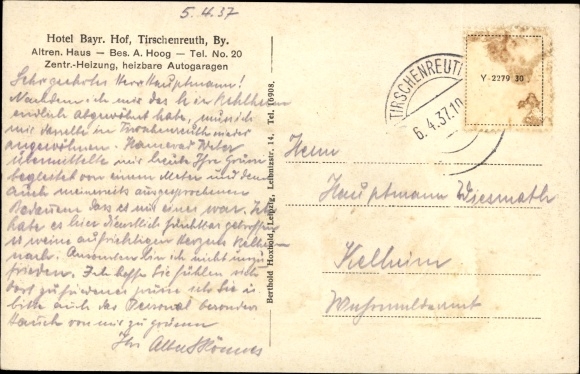 5.4.37
Hotel Bayr. Hof, Tirschenreuth, By.
Altren. Haus — Bes. A. Hoog — Tel. No. 20
Zentr.-Heizung, heizbare Autogaragen
Sehr geehrter Herr Hauptmann!
Nachdem ich mir das in Kelheim
endlich abgewöhnt habe, muss ich
mir dasselbe in Tirschenreuth wieder
angewöhnen. Kamerad
übermittelte mir heute Ihre Grüsse
begleitet von einem Meter und dem
auch meinerseits ausgesprochenen
Bedauern dass es nur einer war. Ich
habe es hier dienstlich getroffen
weine aufrichtigen Herzens Kelheim
nach. Ansonsten bin ich nicht unzu-
frieden. Ich hoffe Sie fühlen sich
dort zufrieden Sie
bitte auch das Personal besonders
auch von mir zu grüssen
Ihr
Berthold Hoxhold, Leipzig, Leibnizstr. 14. Tel. 10908.
TIRSCHENREUTH
6.4.37.10
Y 2279 30
Herrn
Hauptmann Wiesmath
Kelheim
Wehrmeldeamt